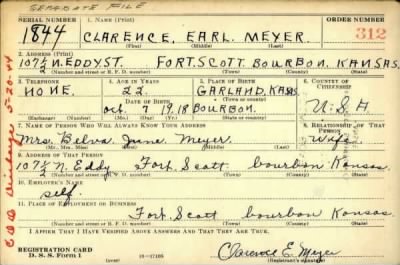 SEPARATE FILE
SERIAL NUMBER 1. NAME (Print) ORDER NUMBER
1844 CLARENCE, EARL. MEYER. 312
(First) (Middle) (Last)
2. ADDRESS (Print)
107½ N. EDDY ST. FORT. SCOTT BOURBON, KANSAS.
(Number and street or R. F. D. number) (Town) (County) (State)
3. TELEPHONE 4. AGE IN YEARS 5. PLACE OF BIRTH 6. COUNTRY OF CITIZENSHIP
NONE. 22. GARLAND, KANS.
DATE OF BIRTH (Town or county)
Oct. 7, 1918 BOURBON. U.S.A
(Exchange) (Number) (Mo.) (Day) (Yr.) (State or country)
7. NAME OF PERSON WHO WILL ALWAYS KNOW YOUR ADDRESS 8. RELATIONSHIP OF THAT PERSON
Mrs. Belva June Meyer Wife
(Mr., Mrs., Miss) (First) (Middle) (Last)
9. ADDRESS OF THAT PERSON
107½ N. Eddy Fort Scott bourbon Kansas
(Number and street or R. F. D. number) (Town) (County) (State)
10. EMPLOYER'S NAME
self.
11. PLACE OF EMPLOYMENT OR BUSINESS
Fort Scott bourbon Kansas.
(Number and street or R. F. D. number) (Town) (County) (State)
I AFFIRM THAT I HAVE VERIFIED ABOVE ANSWERS AND THAT THEY ARE TRUE.
REGISTRATION CARD
D. S. S. Form 1 16-17105 Clarence E. Meyer
(Registrant's signature)
Discharge 5-20-44